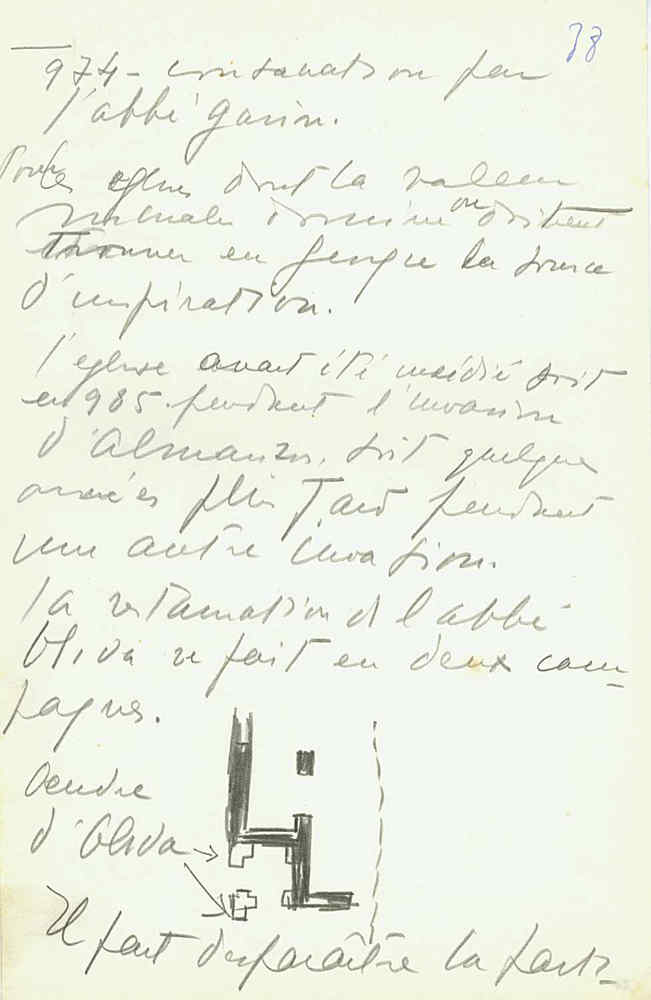 38
974 - consécration par
l'abbé Garin.
Pour les églises dont la valeur
domine on doit
trouver en Geogie la source
d'inspiration.
l'église avait été incédié soit
en 985 pendant l'invasion
d'Almanzor, soit quelques
années plus tard pendant
une autre invasion.
la restauration de l'abbé
Oliva se fait en deux cam-
pagnes.
Oeuvre
d'Oliva
Il fait disparaître la part-